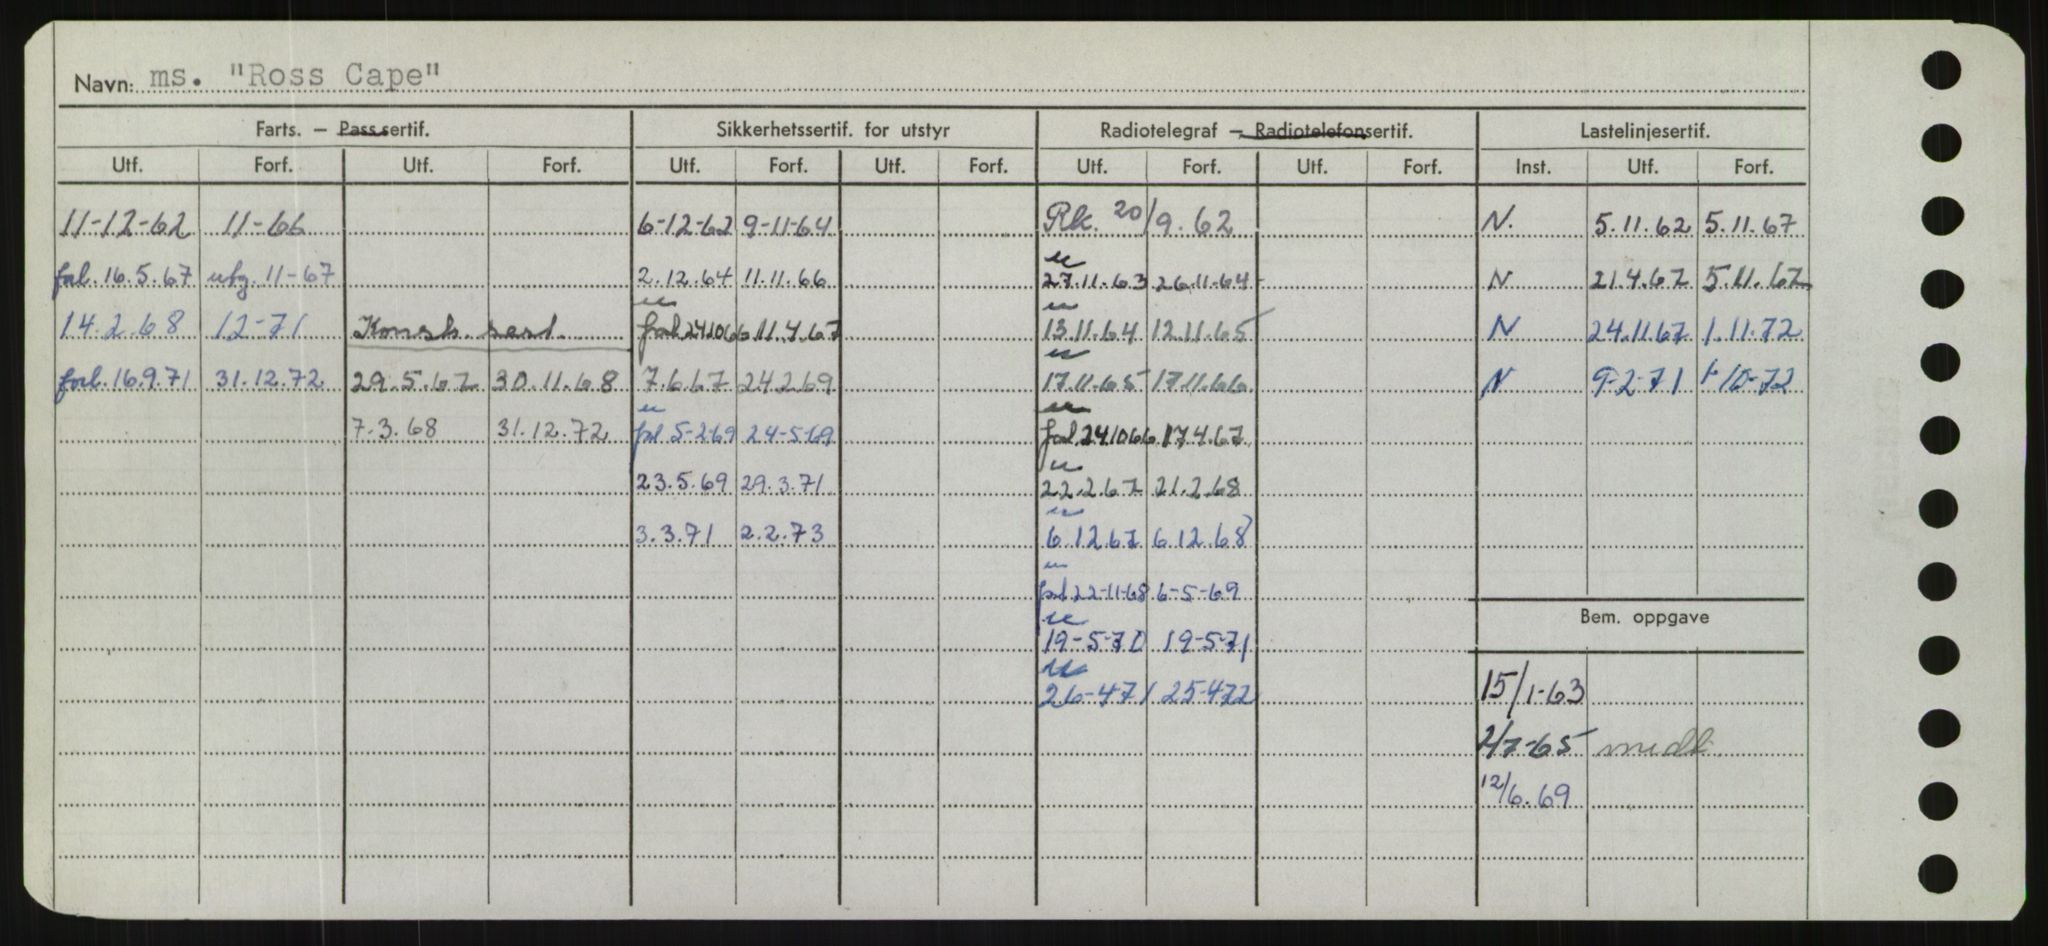 Navn: ms. "Ross Cape"
Farts. — Passsertif. Sikkerhetssertif. for utstyr Radiotelegraf — Radiotelefonsertif. Lastelinjesertif.
Utf. Forf. Utf. Forf. Utf. Forf. Utf. Forf. Utf. Forf. Utf. Forf. Inst. Utf. Forf.
11-12-62 11-66 6-12-62 9-11-64 Rk. 20/9.62 N. 5.11.62 5.11.67
forl. 16.5.67 utg. 11-67 2.12.64 11.11.66 27.11.63 26.11.64 N 21.4.67 5.11.67
14.2.68 12-71 Konstr. sert. forl 241066 11.4.67 13.11.64 12.11.65 N 24.11.67 1.11.72
forl. 16.9.71 31.12.72 29.5.67 30.11.68 7.6.67 24.2.69 17.11.65 17.11.66 N 9-2-71 1-10-72
7.3.68 31.12.72 forl 5-2-69 24-5-69 forl 241066 17.4.67
23.5.69 29.3.71 22.2.67 21.2.68
3.3.71 2.2.73 6.12.67 6.12.68
forl 22-11-68 6-5-69
Bem. oppgave
19-5-70 19-5-71
26-471 25-472 15/1-63
2/7-65 medl.
12/6.69